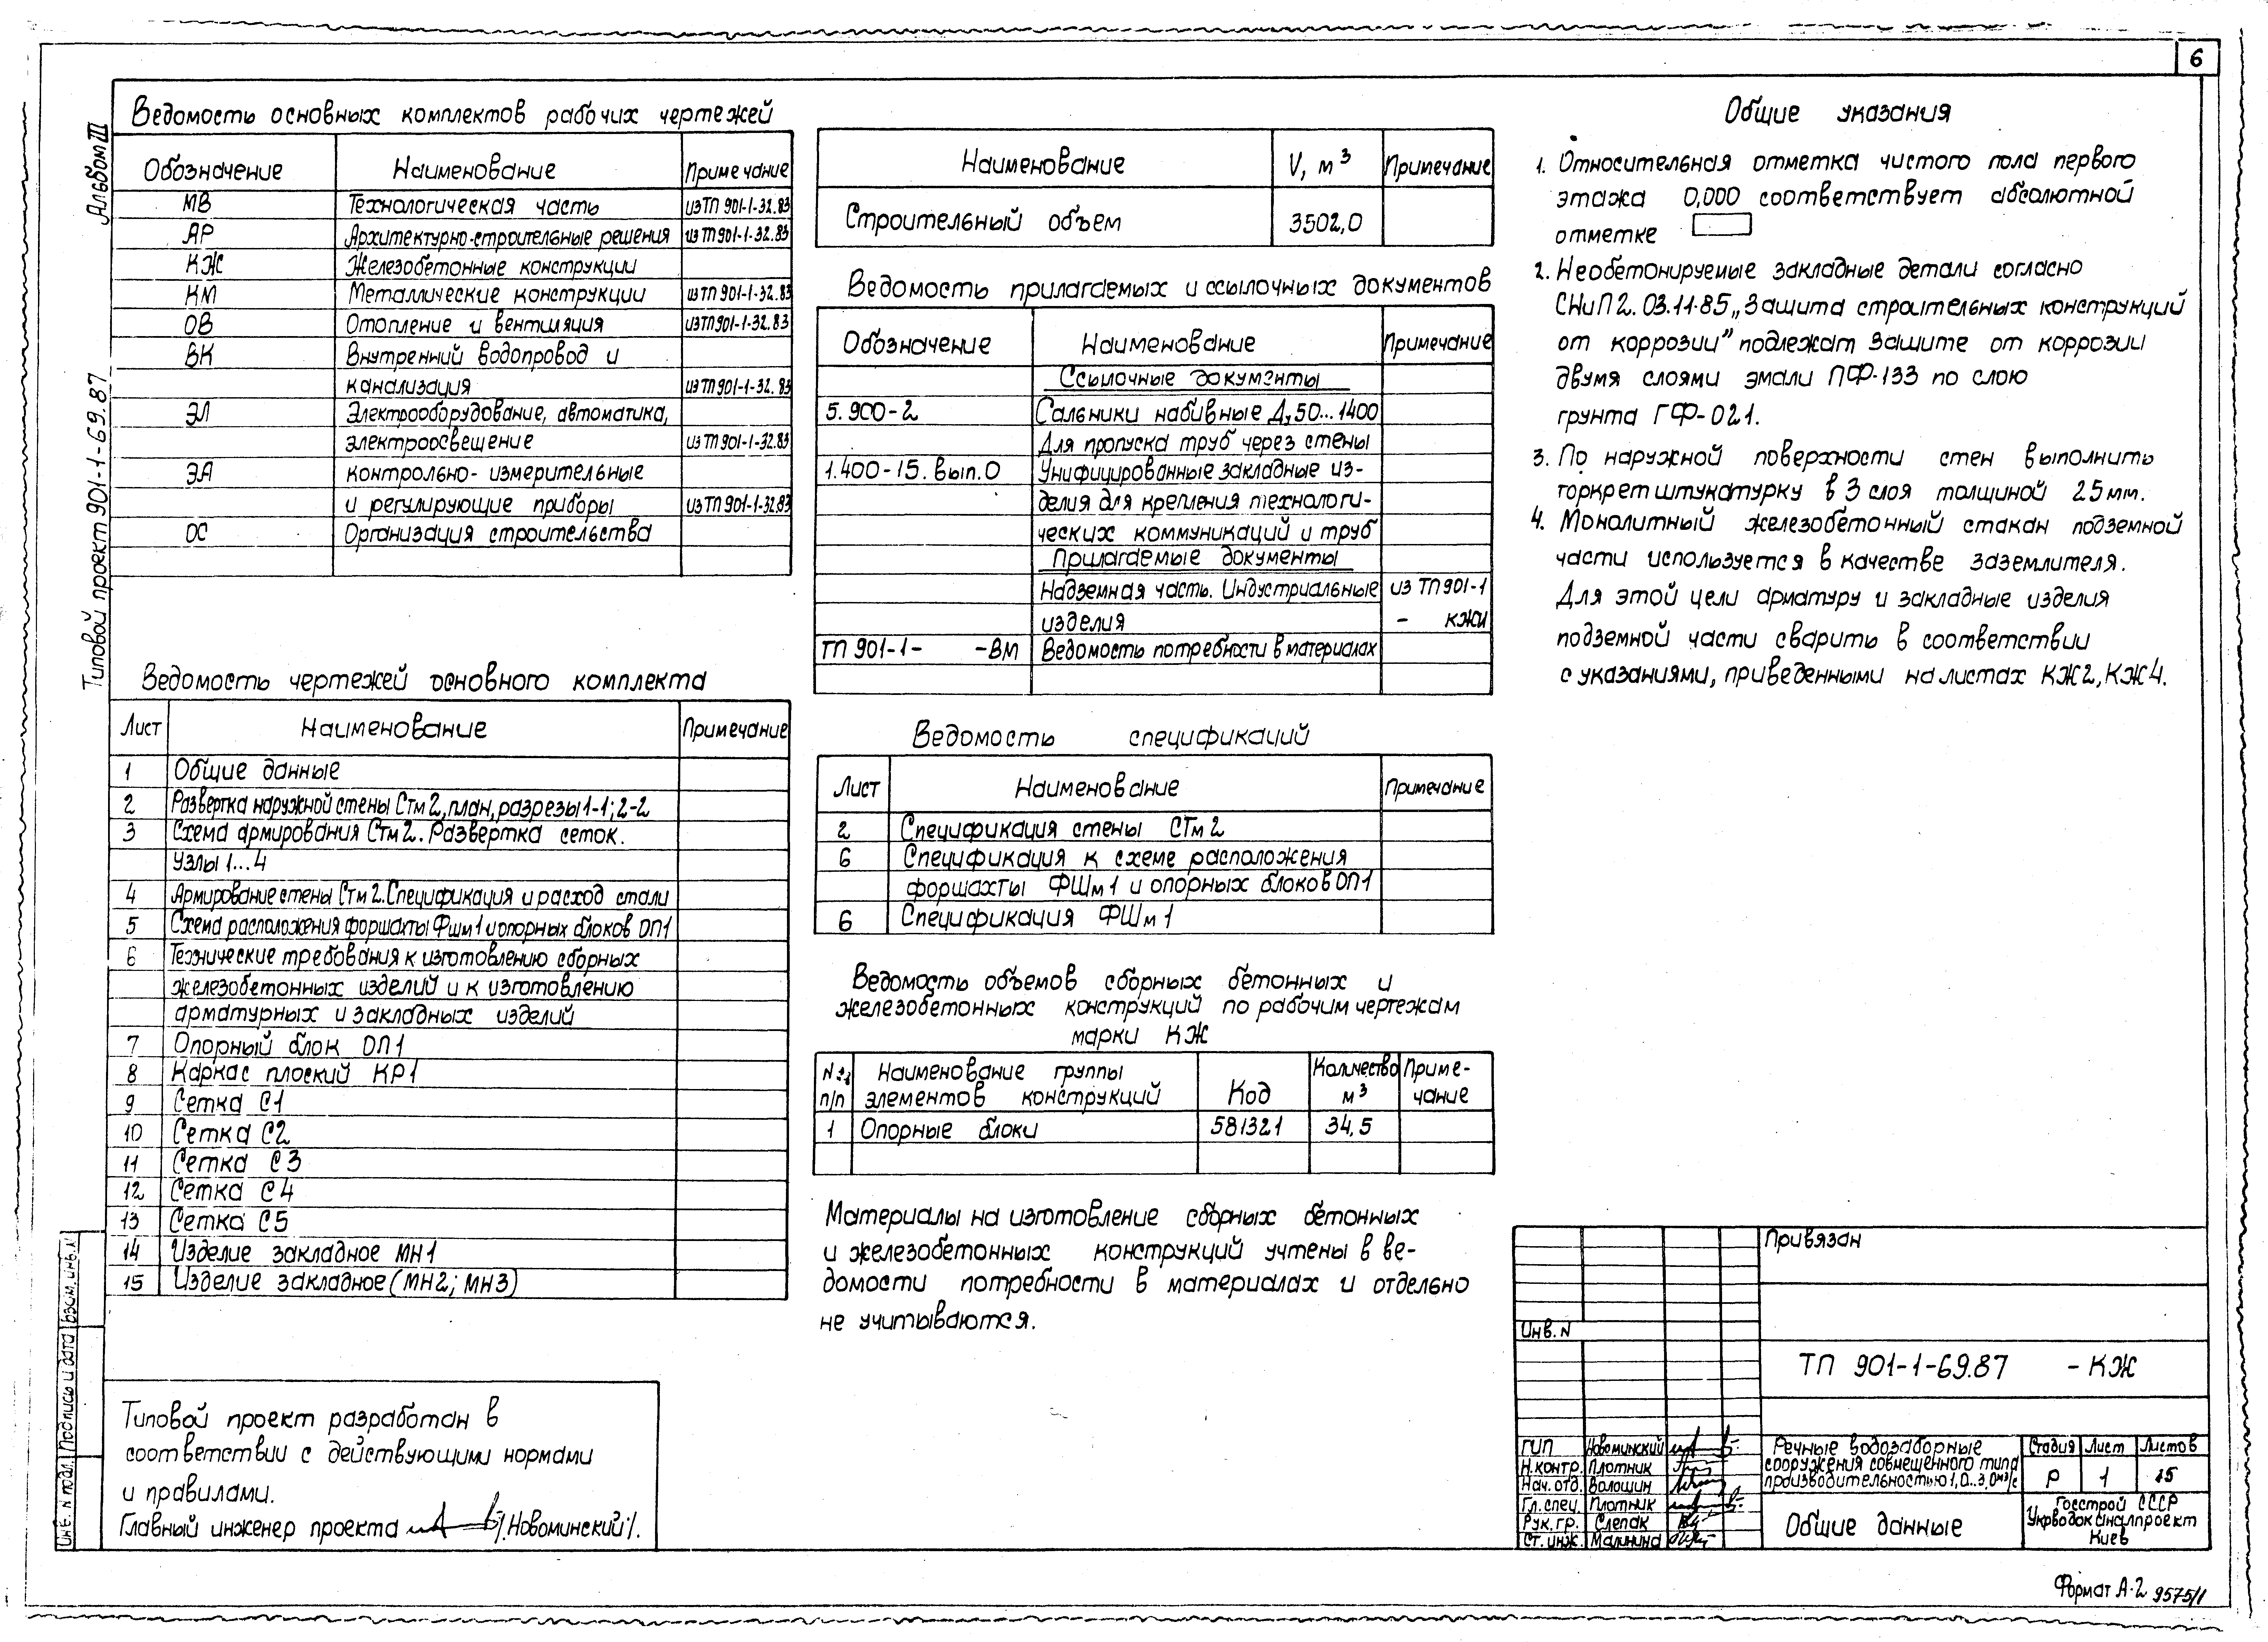 6
Альбом III
Типовой проект 901-1-69.87
Ведомость основных комплектов рабочих чертежей
Обозначение Наименование Примечание
МВ Технологическая часть из ТП 901-1-32.83
АР Архитектурно-строительные решения из ТП 901-1-32.83
КЖ Железобетонные конструкции
КМ Металлические конструкции из ТП 901-1-32.83
ОВ Отопление и вентиляция из ТП 901-1-32.83
ВК Внутренний водопровод и
канализация из ТП 901-1-32.83
ЭЛ Электрооборудование, автоматика,
электроосвещение из ТП 901-1-32.83
ЭА контрольно-измерительные
и регулирующие приборы из ТП 901-1-32.83
ОС Организация строительства
Ведомость чертежей основного комплекта
Лист Наименование Примечание
1 Общие данные
2 Развертка наружной стены Стм2, план, разрезы 1-1; 2-2
3 Схема армирования Стм2. Развертка сеток.
Узлы 1...4
4 Армирование стены Стм2. Спецификация и расход стали
5 Схема расположения форшахты Фшм1 и опорных блоков ОП1
6 Технические требования к изготовлению сборных
железобетонных изделий и к изготовлению
арматурных и закладных изделий
7 Опорный блок ОП1
8 Каркас плоский КР1
9 Сетка С1
10 Сетка С2
11 Сетка С3
12 Сетка С4
13 Сетка С5
14 Изделие закладное МН1
15 Изделие закладное (МН2; МН3)
Типовой проект разработан в
соответствии с действующими нормами
и правилами.
Главный инженер проекта /Новоминский/.
Инв. N подл. Подпись и дата Взам. инв. N
Наименование V, м³ Примечание
Строительный объем 3502,0
Ведомость прилагаемых и ссылочных документов
Обозначение Наименование Примечание
Ссылочные документы
5.900-2 Сальники набивные Ду 50...1400
Для пропуска труб через стены
1.400-15. вып.0 Унифицированные закладные из-
делия для крепления технологи-
ческих коммуникаций и труб
Прилагаемые документы
Надземная часть. Индустриальные из ТП 901-1
изделия - КЖИ
ТП 901-1- -ВМ Ведомость потребности в материалах
Ведомость спецификаций
Лист Наименование Примечание
2 Спецификация стены СТм2
6 Спецификация к схеме расположения
форшахты ФШм1 и опорных блоков ОП1
6 Спецификация ФШм1
Ведомость объемов сборных бетонных и
железобетонных конструкций по рабочим чертежам
марки КЖ
№№ п/п Наименование группы элементов конструкций Код Количество м³ Приме-чание
1 Опорные блоки 581321 34,5
Материалы на изготовление сборных бетонных
и железобетонных конструкций учтены в ве-
домости потребности в материалах и отдельно
не учитываются.
Общие указания
1. Относительная отметка чистого пола первого
этажа 0,000 соответствует абсолютной
отметке
2. Необетонируемые закладные детали согласно
СНиП 2.03.11-85 „Защита строительных конструкций
от коррозии" подлежат защите от коррозии
двумя слоями эмали ПФ-133 по слою
грунта ГФ-021.
3. По наружной поверхности стен выполнить
торкрет штукатурку в 3 слоя толщиной 25мм.
4. Монолитный железобетонный стакан подземной
части используется в качестве заземлителя.
Для этой цели арматуру и закладные изделия
подземной части сварить в соответствии
с указаниями, приведенными на листах КЖ2, КЖ4.
Привязан
Инв. N
ТП 901-1-69.87 -КЖ
ГИП Новоминский
Н.контр. Плотник
Нач. отд. Волошин
Гл. спец. Плотник
Рук. гр. Слепак
Ст. инж. Малинина
Речные водозаборные
сооружения совмещенного типа
производительностью 1,0...3,0 м³/с
Стадия Лист Листов
Р 1 15
Общие данные
Госстрой СССР
Укрводоканалпроект
Киев
Формат А-2 9575/1